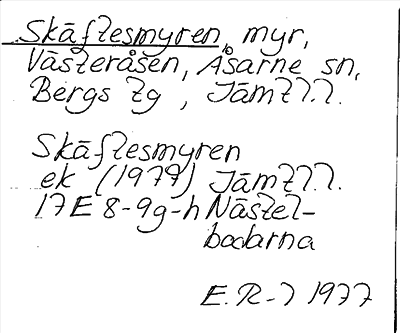 Skäftesmyren, myr,
Västeråsen, Åsarne sn,
Bergs tg, Jämtl.
Skäftesmyren
ek (1977) Jämtl.
17E 8-9g-h Nästel-
bodarna
E.R-l 1977